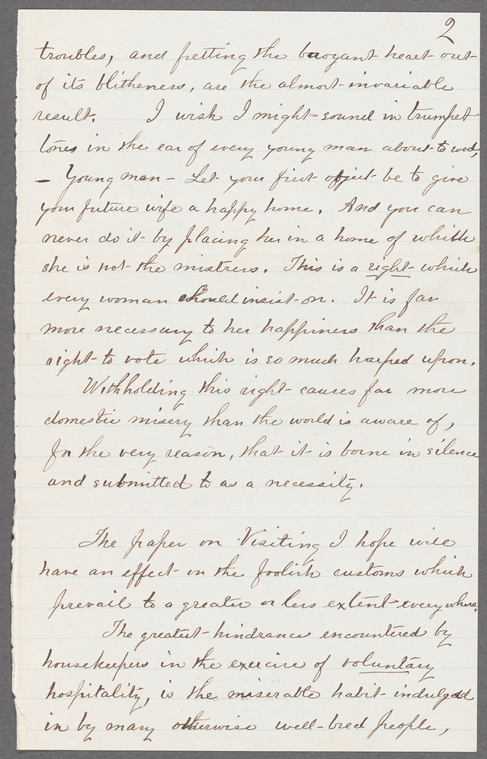 2
troubles, and fretting the buoyant heart out
of its blitheness, are the almost invariable
result. I wish I might sound in trumpet
tones in the ear of every young man about to wed,
– Young man – Let your first object be to give
your future wife a happy home. And you can
never do it by placing her in a home of which
she is not the mistress. This is a right which
every woman should insist on. It is far
more necessary to her happiness than the
right to vote which is so much harped upon.
Withholding this right causes far more
domestic misery than the world is aware of,
for the very reason, that it is borne in silence
and submitted to as a necessity.
The paper on Visiting I hope will
have an effect on the foolish customs which
prevail to a greater or less extent everywhere.
The greatest hindrance encountered by
housekeepers in the exercise of voluntary
hospitality, is the miserable habit indulged
in by many otherwise well-bred people,